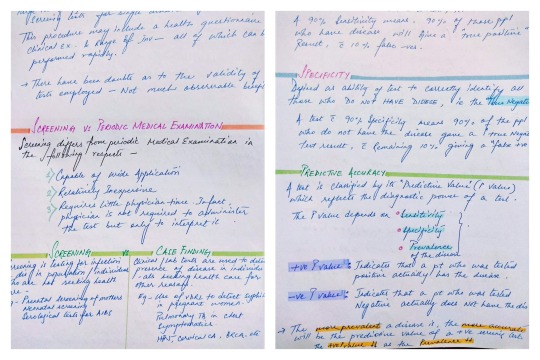 This procedure may include a health questionnaire
clinical ex. & Range of inv — all of which can b
performed rapidly.
→ There have been doubts as to the validity of
tests employed – Not much observable benefi
SCREENING VS PERIODIC MEDICAL EXAMINATION
Screening differs from periodic Medical Examination in
the following respects —
1) Capable of wide Application
2) Relatively Inexpensive
3) Requires little physician-time. Infact
physician is not required to administer
the test but only to interpret it.
SCREENING VS CASE FINDING
creening is testing for infection
in population/individuals
are not seeking health
Eg – Prenatal screening of mothers
Neonatal screening
serological tests for AIDS
Clinical/lab tests are used to detect
presence of disease in individu
als seeking health care for
other reasons.
Eg – Use of VDRL to detect syphilis
in pregnant women
Pulmonary TB in chest
Symptomatics
HPT, Cervical CA, BRCA, etc
A 90% Sensitivity means 90% of those ppl
who have disease will give a "true positive"
Result, & 10% false -ves.
SPECIFICITY
Defined as ability of test to correctly identify all
those who DO NOT HAVE DISEASE, is the "True Negative
A test & 90% Specificity means 90% of the ppl
who do not have the disease gave a "True Negat
Test result, & remaining 10% giving a "false +ve
PREDICTIVE ACCURACY
A test is classified by its "Predictive Value" (P Value)
which reflects the diagnostic power of a test.
The P value depends on • Sensitivity
• Specificity
• Prevalence
of the disease
+ve P value : Indicates that a pt who was tested
positive actually has the disease.
-ve P value : Indicates that a pt who was tested
Negative actually does Not have the dis
→ The more prevalent a disease is, the more accurate
will be the predictive value of a +ve screening